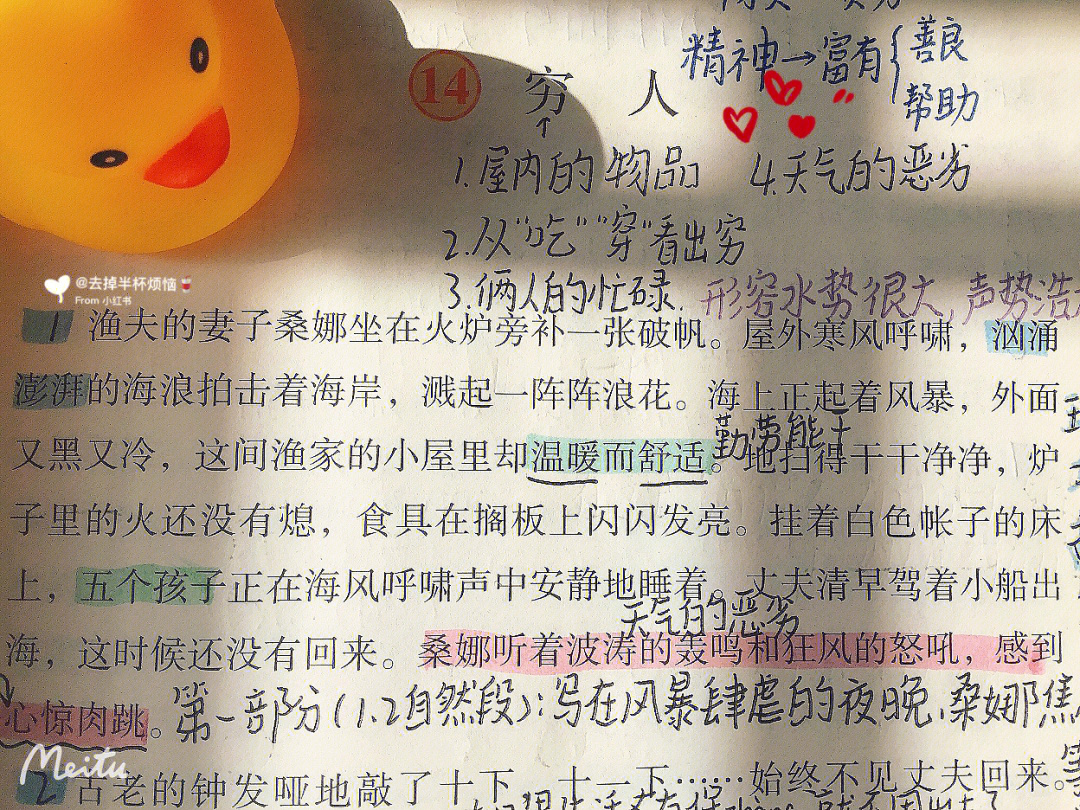 精神→富有{善良
帮助
14 穷人
↑
1.屋内的物品 4.天气的恶劣
2.从"吃""穿"看出穷
3.俩人的忙碌. 形容水势很大,声势浩
@去掉半杯烦恼🍷
From 小红书
1 渔夫的妻子桑娜坐在火炉旁补一张破帆。屋外寒风呼啸，汹涌
澎湃的海浪拍击着海岸，溅起一阵阵浪花。海上正起着风暴，外面
勤劳能干
又黑又冷，这间渔家的小屋里却温暖而舒适。地扫得干干净净，炉
子里的火还没有熄，食具在搁板上闪闪发亮。挂着白色帐子的床
上，五个孩子正在海风呼啸声中安静地睡着。丈夫清早驾着小船出
天气的恶劣
海，这时候还没有回来。桑娜听着波涛的轰鸣和狂风的怒吼，感到
心惊肉跳。
第一部分(1.2自然段):写在风暴肆虐的夜晚,桑娜焦
Meitu
2 古老的钟发哑地敲了十下、十一下……始终不见丈夫回来。